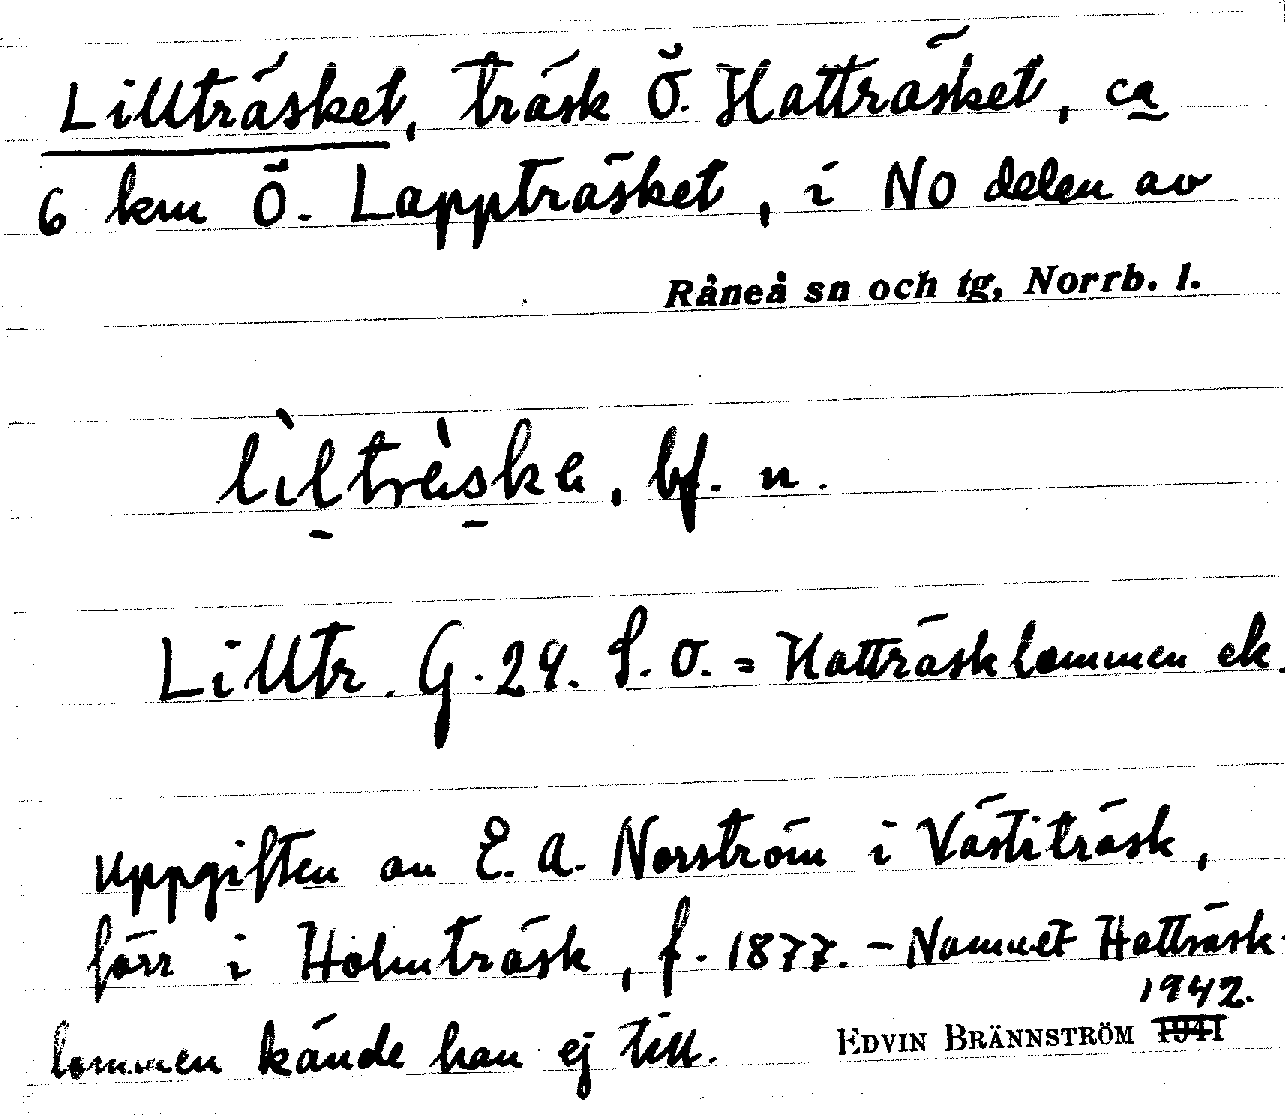 Lillträsket, träsk Ö. Hatträsket, ca
6 km Ö. Lappträsket, i NO delen av
Råneå sn och tg, Norrb. l.
lìltrèska, bf. n.
Lilltr. G. 29. S. O. = Hatträsklommen ek.
Uppgiften av E. A. Norström i Västiträsk,
förr i Holmträsk, f. 1877. – Namnet Hatträsk-
lommen kände han ej till.
1942.
EDVIN BRÄNNSTRÖM 1941